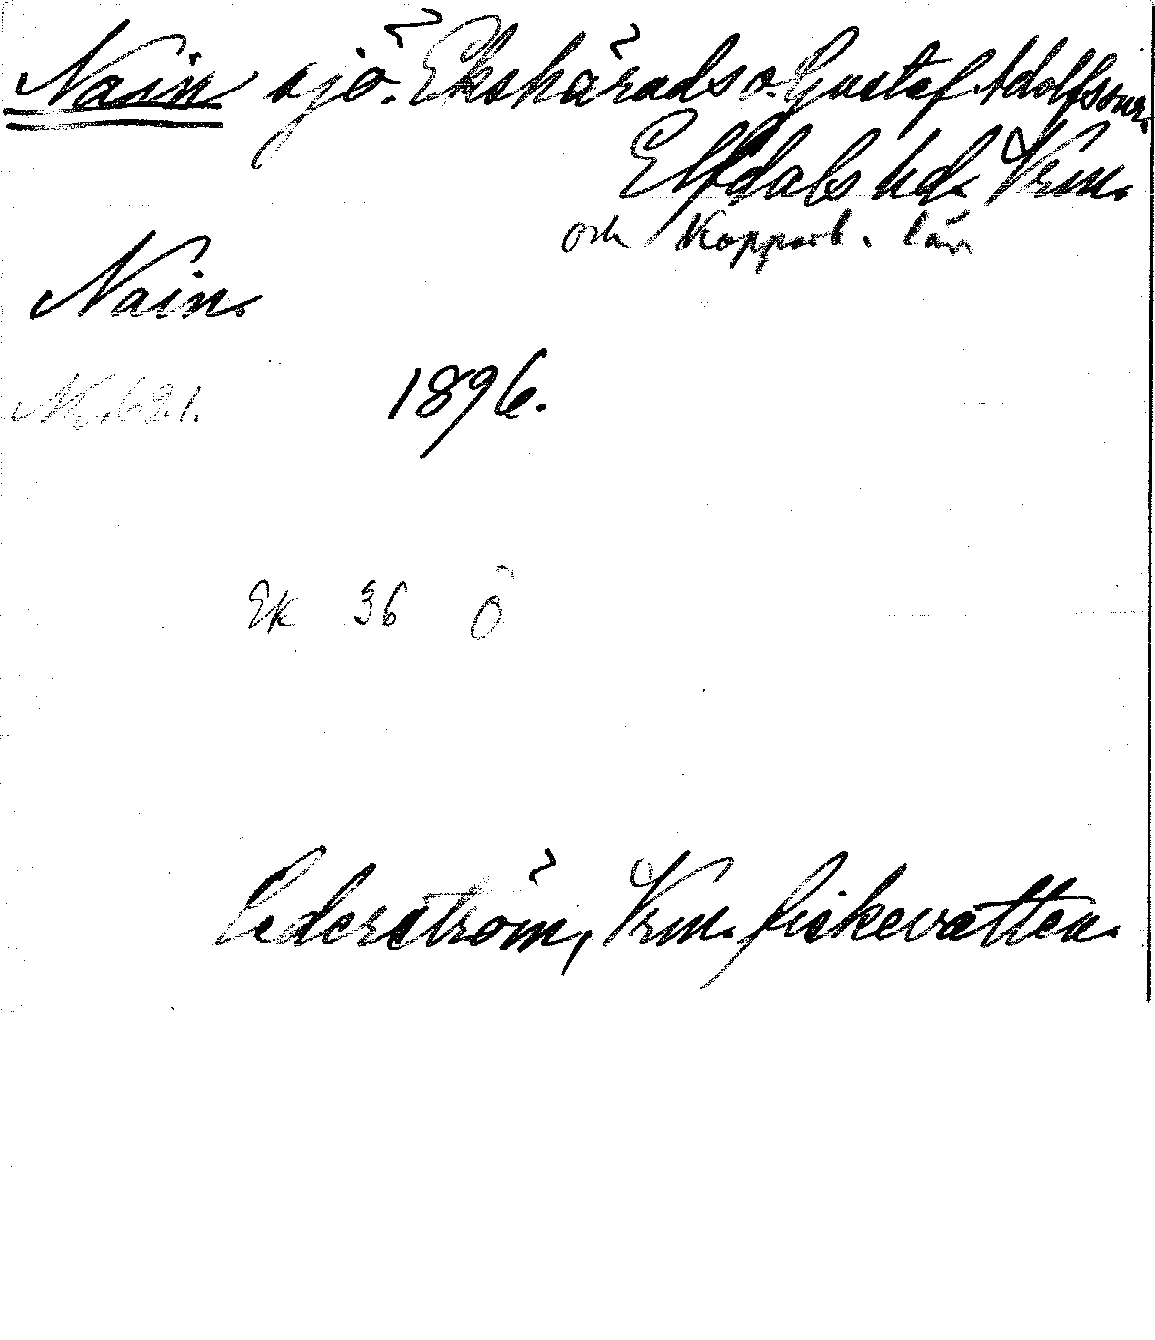 Nain sjö. Ekshärads o. Gustaf Adolfs snr.
Elfdals hd. Vrm.
och Kopparb. län
Nain.
1896.
Ek 36 Ö
Cederström, Vrm. fiskevatten.